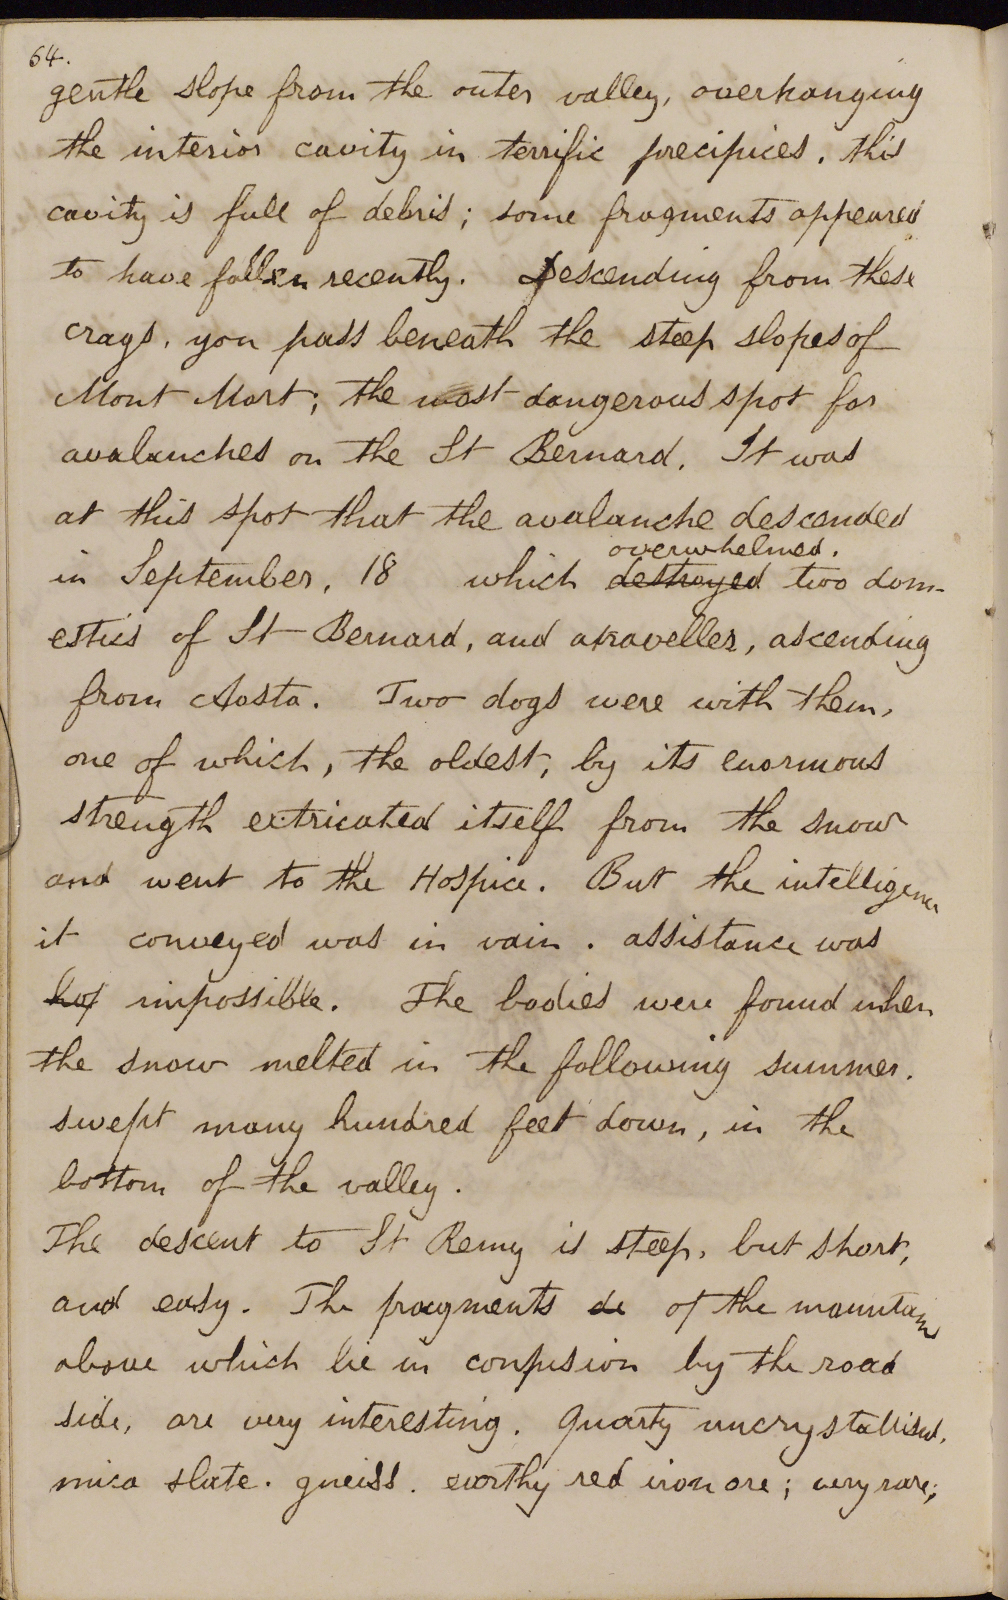 64.
gentle slope from the outer valley, overhanging
the interior cavity in terrific precipices. this
cavity is full of debris; some fragments appeared
to have fallen recently. Descending from these
crags, you pass beneath the steep slopes of
Mont Mort; the most dangerous spot for
avalanches on the St Bernard. It was
at this spot that the avalanche descended
overwhelmed.
in September, 18 which destroyed two dom-
estics of St Bernard, and a traveller, ascending
from Aosta. Two dogs were with them,
one of which, the oldest, by its enormous
strength extricated itself from the snow
and went to the Hospice. But the intelligence
it conveyed was in vain. assistance was
impossible. The bodies were found when
the snow melted in the following summer.
swept many hundred feet down, in the
bottom of the valley.
The descent to St Remy is steep, but short,
and easy. The fragments de of the mountains
above which lie in confusion by the road
side, are very interesting. Quartz uncrystallised,
mica slate. gneiss. earthy red iron ore; very rare;